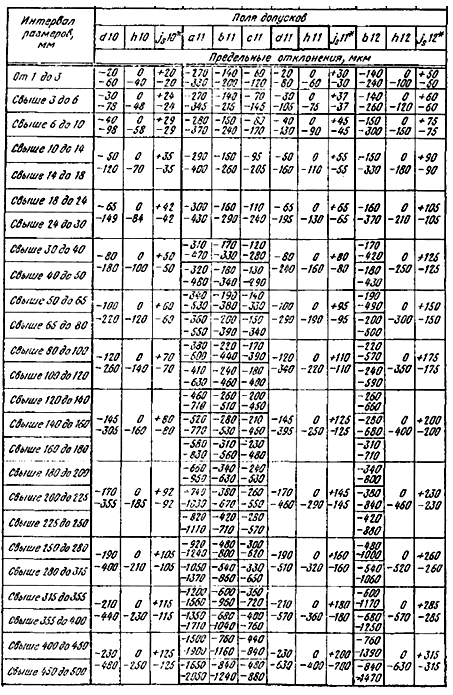 Интервал размеров, мм
Поля допусков
d10 h10 js10* a11 b11 c11 d11 h11 js11* b12 h12 js12*
Предельные отклонения, мкм
От 1 до 3 -20 0 +20 -270 -140 -60 -20 0 +30 -140 0 +50
-60 -40 -20 -330 -200 -120 -80 -60 -30 -240 -100 -50
Свыше 3 до 6 -30 0 +24 -270 -140 -70 -30 0 +37 -140 0 +60
-78 -48 -24 -345 -215 -145 -105 -75 -37 -260 -120 -60
Свыше 6 до 10 -40 0 +29 -280 -150 -80 -40 0 +45 -150 0 +75
-98 -58 -29 -370 -240 -170 -130 -90 -45 -300 -150 -75
Свыше 10 до 14
-50 0 +35 -290 -150 -95 -50 0 +55 -150 0 +90
-120 -70 -35 -400 -260 -205 -160 -110 -55 -330 -180 -90
Свыше 14 до 18
Свыше 18 до 24
-65 0 +42 -300 -160 -110 -65 0 +65 -160 0 +105
-149 -84 -42 -430 -290 -240 -195 -130 -65 -370 -210 -105
Свыше 24 до 30
Свыше 30 до 40 -310 -170 -120 -170
-470 -330 -280 -420
-80 0 +50 -80 0 +80 0 +125
-180 -100 -50 -240 -160 -80 -250 -125
Свыше 40 до 50 -320 -180 -130 -180
-480 -340 -290 -430
Свыше 50 до 65 -340 -190 -140 -190
-530 -380 -330 -490
-100 0 +60 -100 0 +95 0 +150
-220 -120 -60 -290 -190 -95 -300 -150
Свыше 65 до 80 -360 -200 -150 -200
-550 -390 -340 -500
Свыше 80 до 100 -380 -220 -170 -220
-600 -440 -390 -570
-120 0 +70 -120 0 +110 0 +175
-260 -140 -70 -340 -220 -110 -350 -175
Свыше 100 до 120 -410 -240 -180 -240
-630 -460 -400 -590
Свыше 120 до 140 -460 -260 -200 -260
-710 -510 -450 -660
Свыше 140 до 160 -145 0 +80 -520 -280 -210 -145 0 +125 -280 0 +200
-305 -160 -80 -770 -530 -460 -395 -250 -125 -680 -400 -200
Свыше 160 до 180 -580 -310 -230 -310
-830 -560 -480 -710
Свыше 180 до 200 -660 -340 -240 -340
-950 -630 -530 -800
Свыше 200 до 225 -170 0 +92 -740 -380 -260 -170 0 +145 -380 0 +230
-355 -185 -92 -1030 -670 -550 -460 -290 -145 -840 -460 -230
Свыше 225 до 250 -820 -420 -280 -420
-1110 -710 -570 -880
Свыше 250 до 280 -920 -480 -300 -480
-1240 -800 -620 -1000
-190 0 +105 -190 0 +160 0 +260
-400 -210 -105 -510 -320 -160 -520 -260
Свыше 280 до 315 -1050 -540 -330 -540
-1370 -860 -650 -1060
Свыше 315 до 355 -1200 -600 -360 -600
-1560 -960 -720 -1170
-210 0 +115 -210 0 +180 0 +285
-440 -230 -115 -570 -360 -180 -570 -285
Свыше 355 до 400 -1350 -680 -400 -680
-1710 -1040 -760 -1250
Свыше 400 до 450 -1500 -760 -440 -760
-1900 -1160 -840 -1390
-230 0 +125 -230 0 +200 0 +315
-480 -250 -125 -630 -400 -200 -630 -315
Свыше 450 до 500 -1650 -840 -480 -840
-2050 -1240 -880 -1470